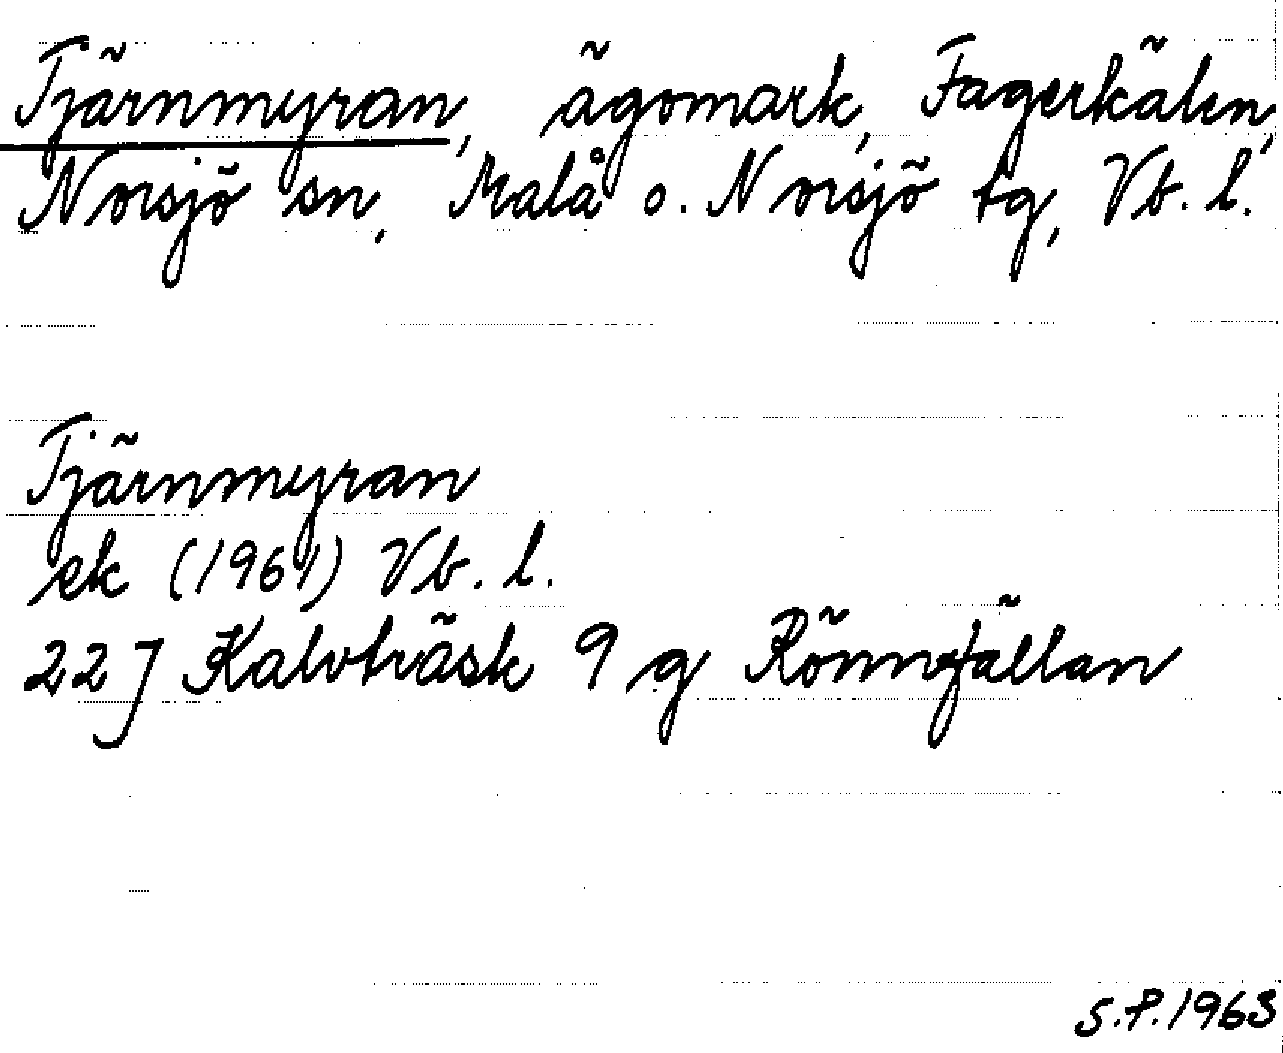 Tjärnmyran, ägomark, Fagerkälen,
Norsjö sn, Malå o. Norsjö tg, Vb. l.
Tjärnmyran
ek (1961) Vb. l.
22 J Kalvträsk 9 g Rönnfällan
S.P. 1963